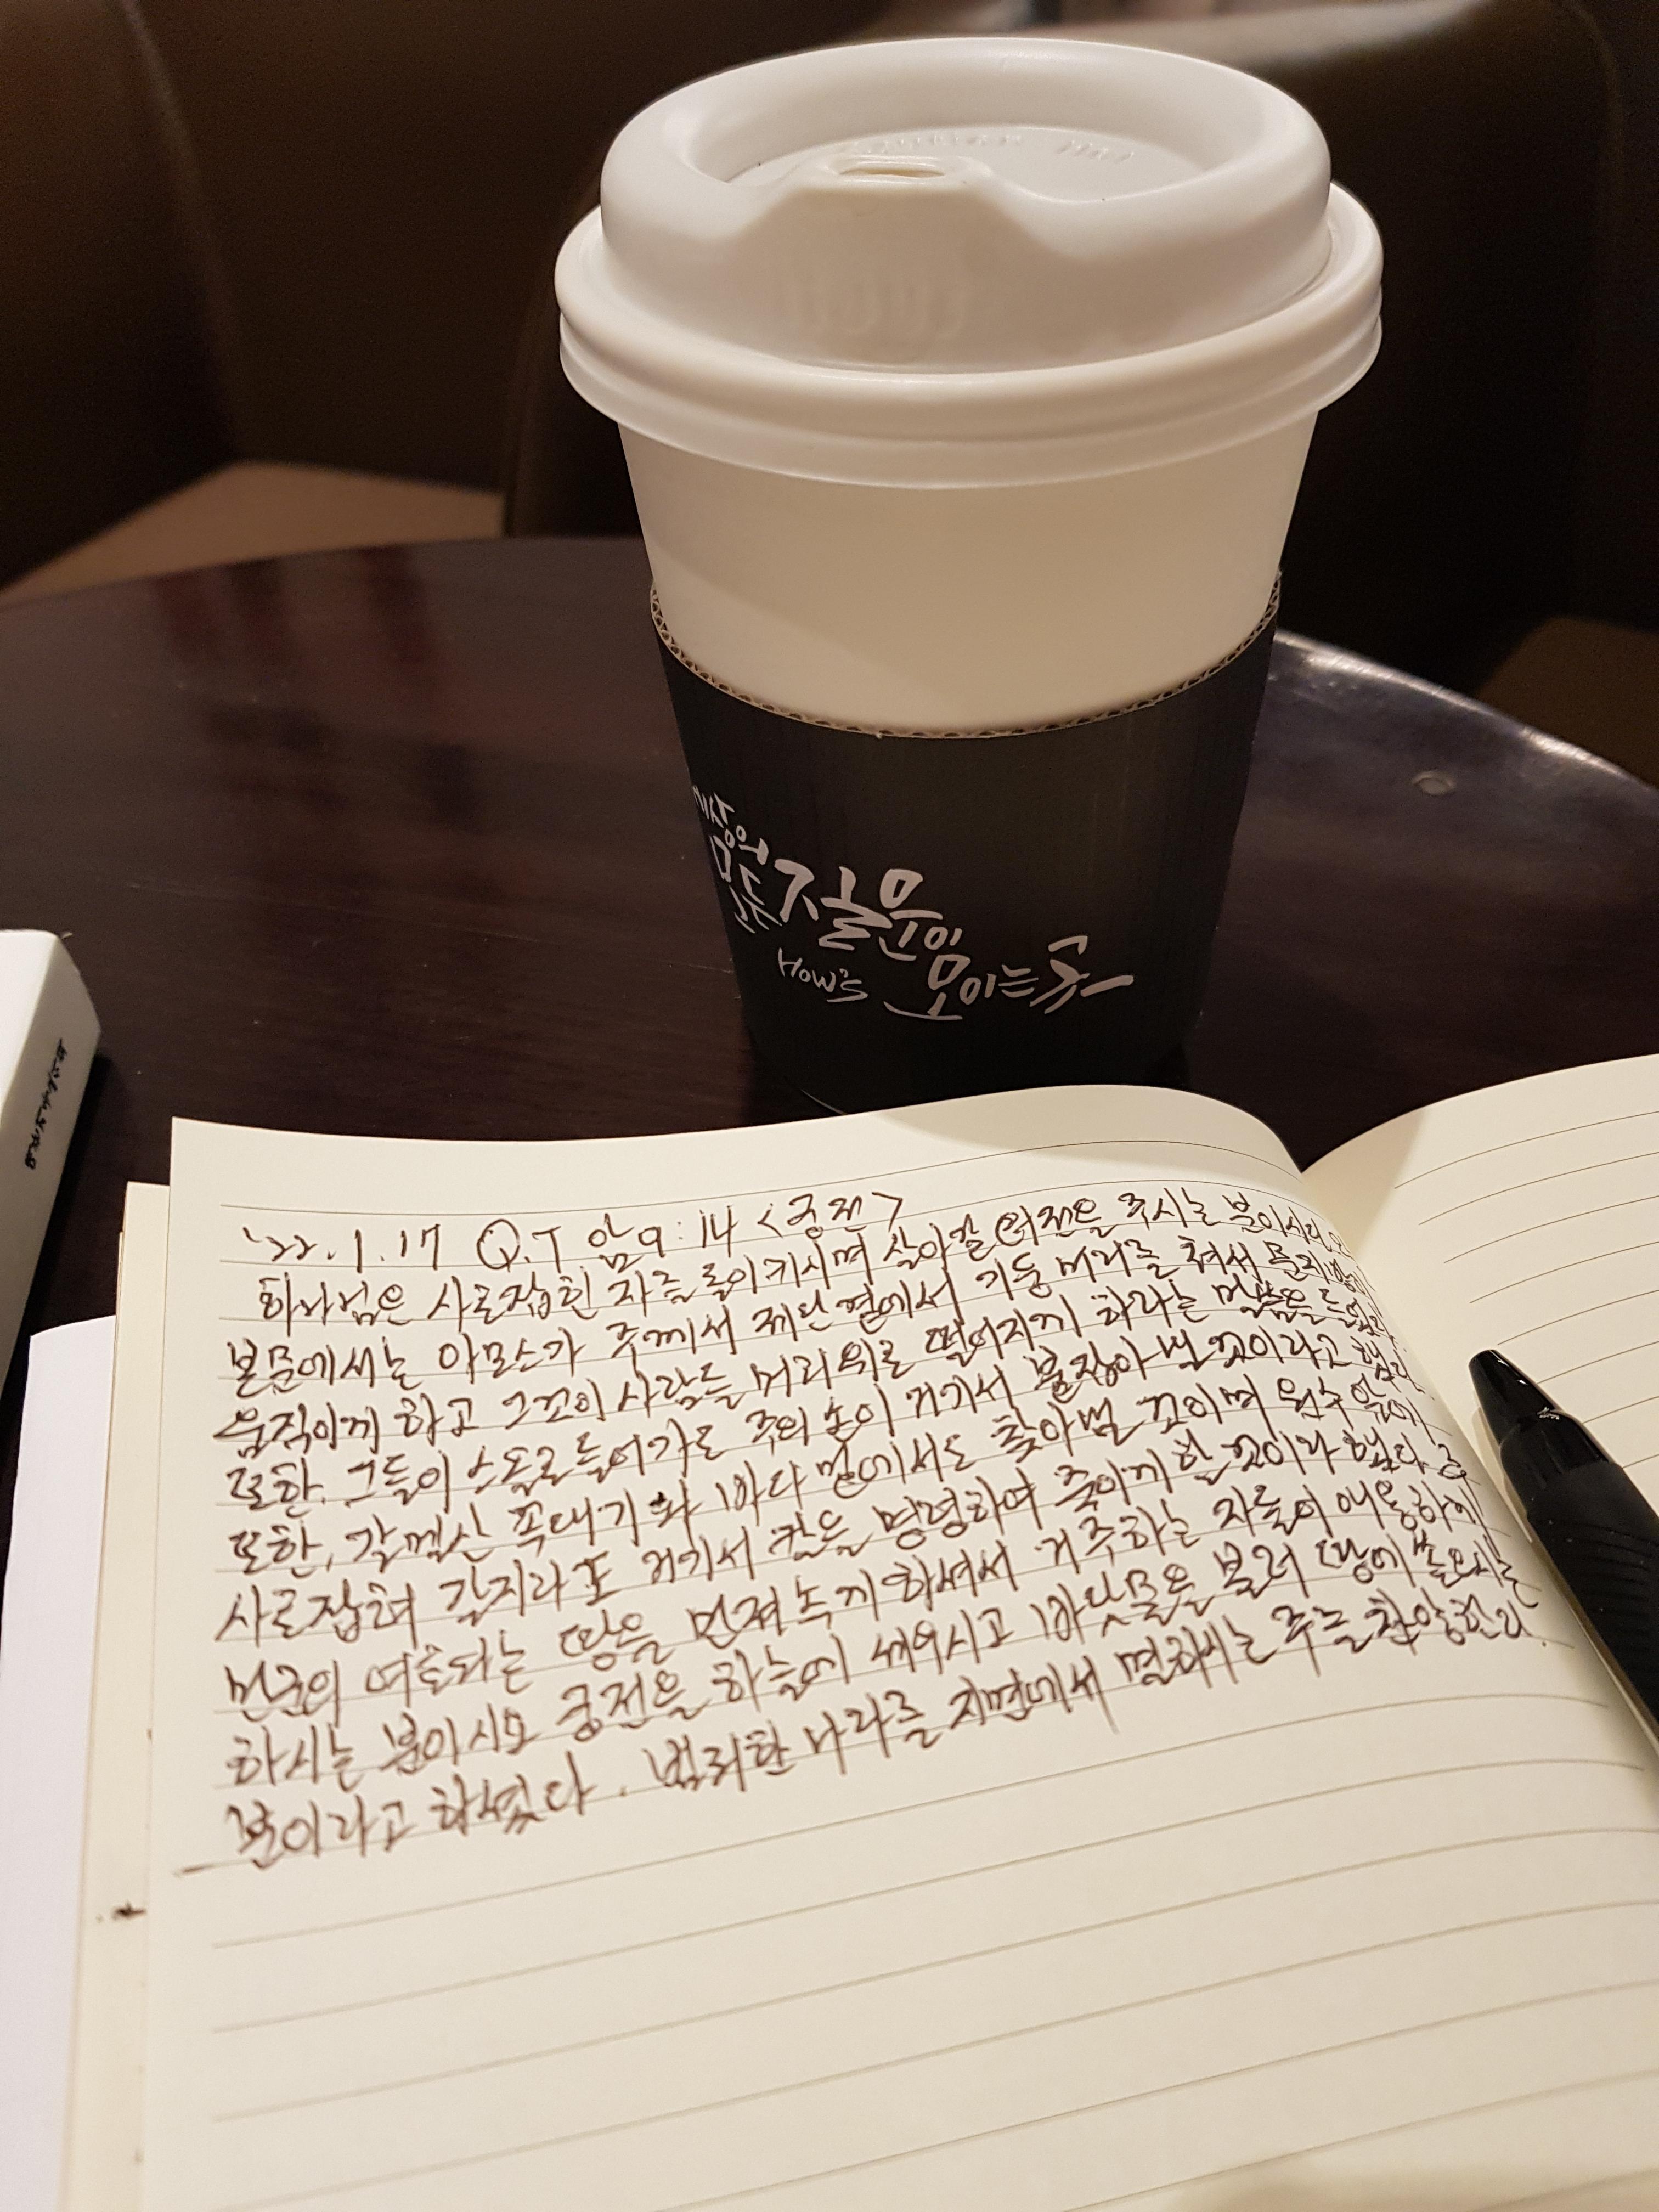 세상의
모든 질문이
How's 모이는 곳
'22.1.17 Q.T 암9:14 <궁전>
하나님은 사로잡힌 자를 돌이키시며 살아갈 여건을 주시는 분이시다.
본문에서는 아모스가 주께서 제단 곁에서 기둥 머리를 쳐서 문지방이
움직이게 하고 그것이 사람들 머리 위로 떨어지게 하라는 말씀을 들었다
또한, 그들이 스올로 들어가도 주의 손이 거기서 붙잡아 낼 것이라고 했다.
또한, 갈멜산 꼭대기와 바다 밑에서도 찾아낼 것이며 원수 앞에
사로잡혀 갈지라도 거기서 칼을 명령하여 죽이게 할 것이라 했다. 주
만군의 여호와는 땅을 만져 녹게 하셔서 거주하는 자들이 애통하게
하시는 분이시요 궁전을 하늘에 세우시고 바닷물을 불러 땅에 쏟으시는
분이라고 하셨다. 범죄한 나라를 지면에서 멸하시는 주를 찬양한다.